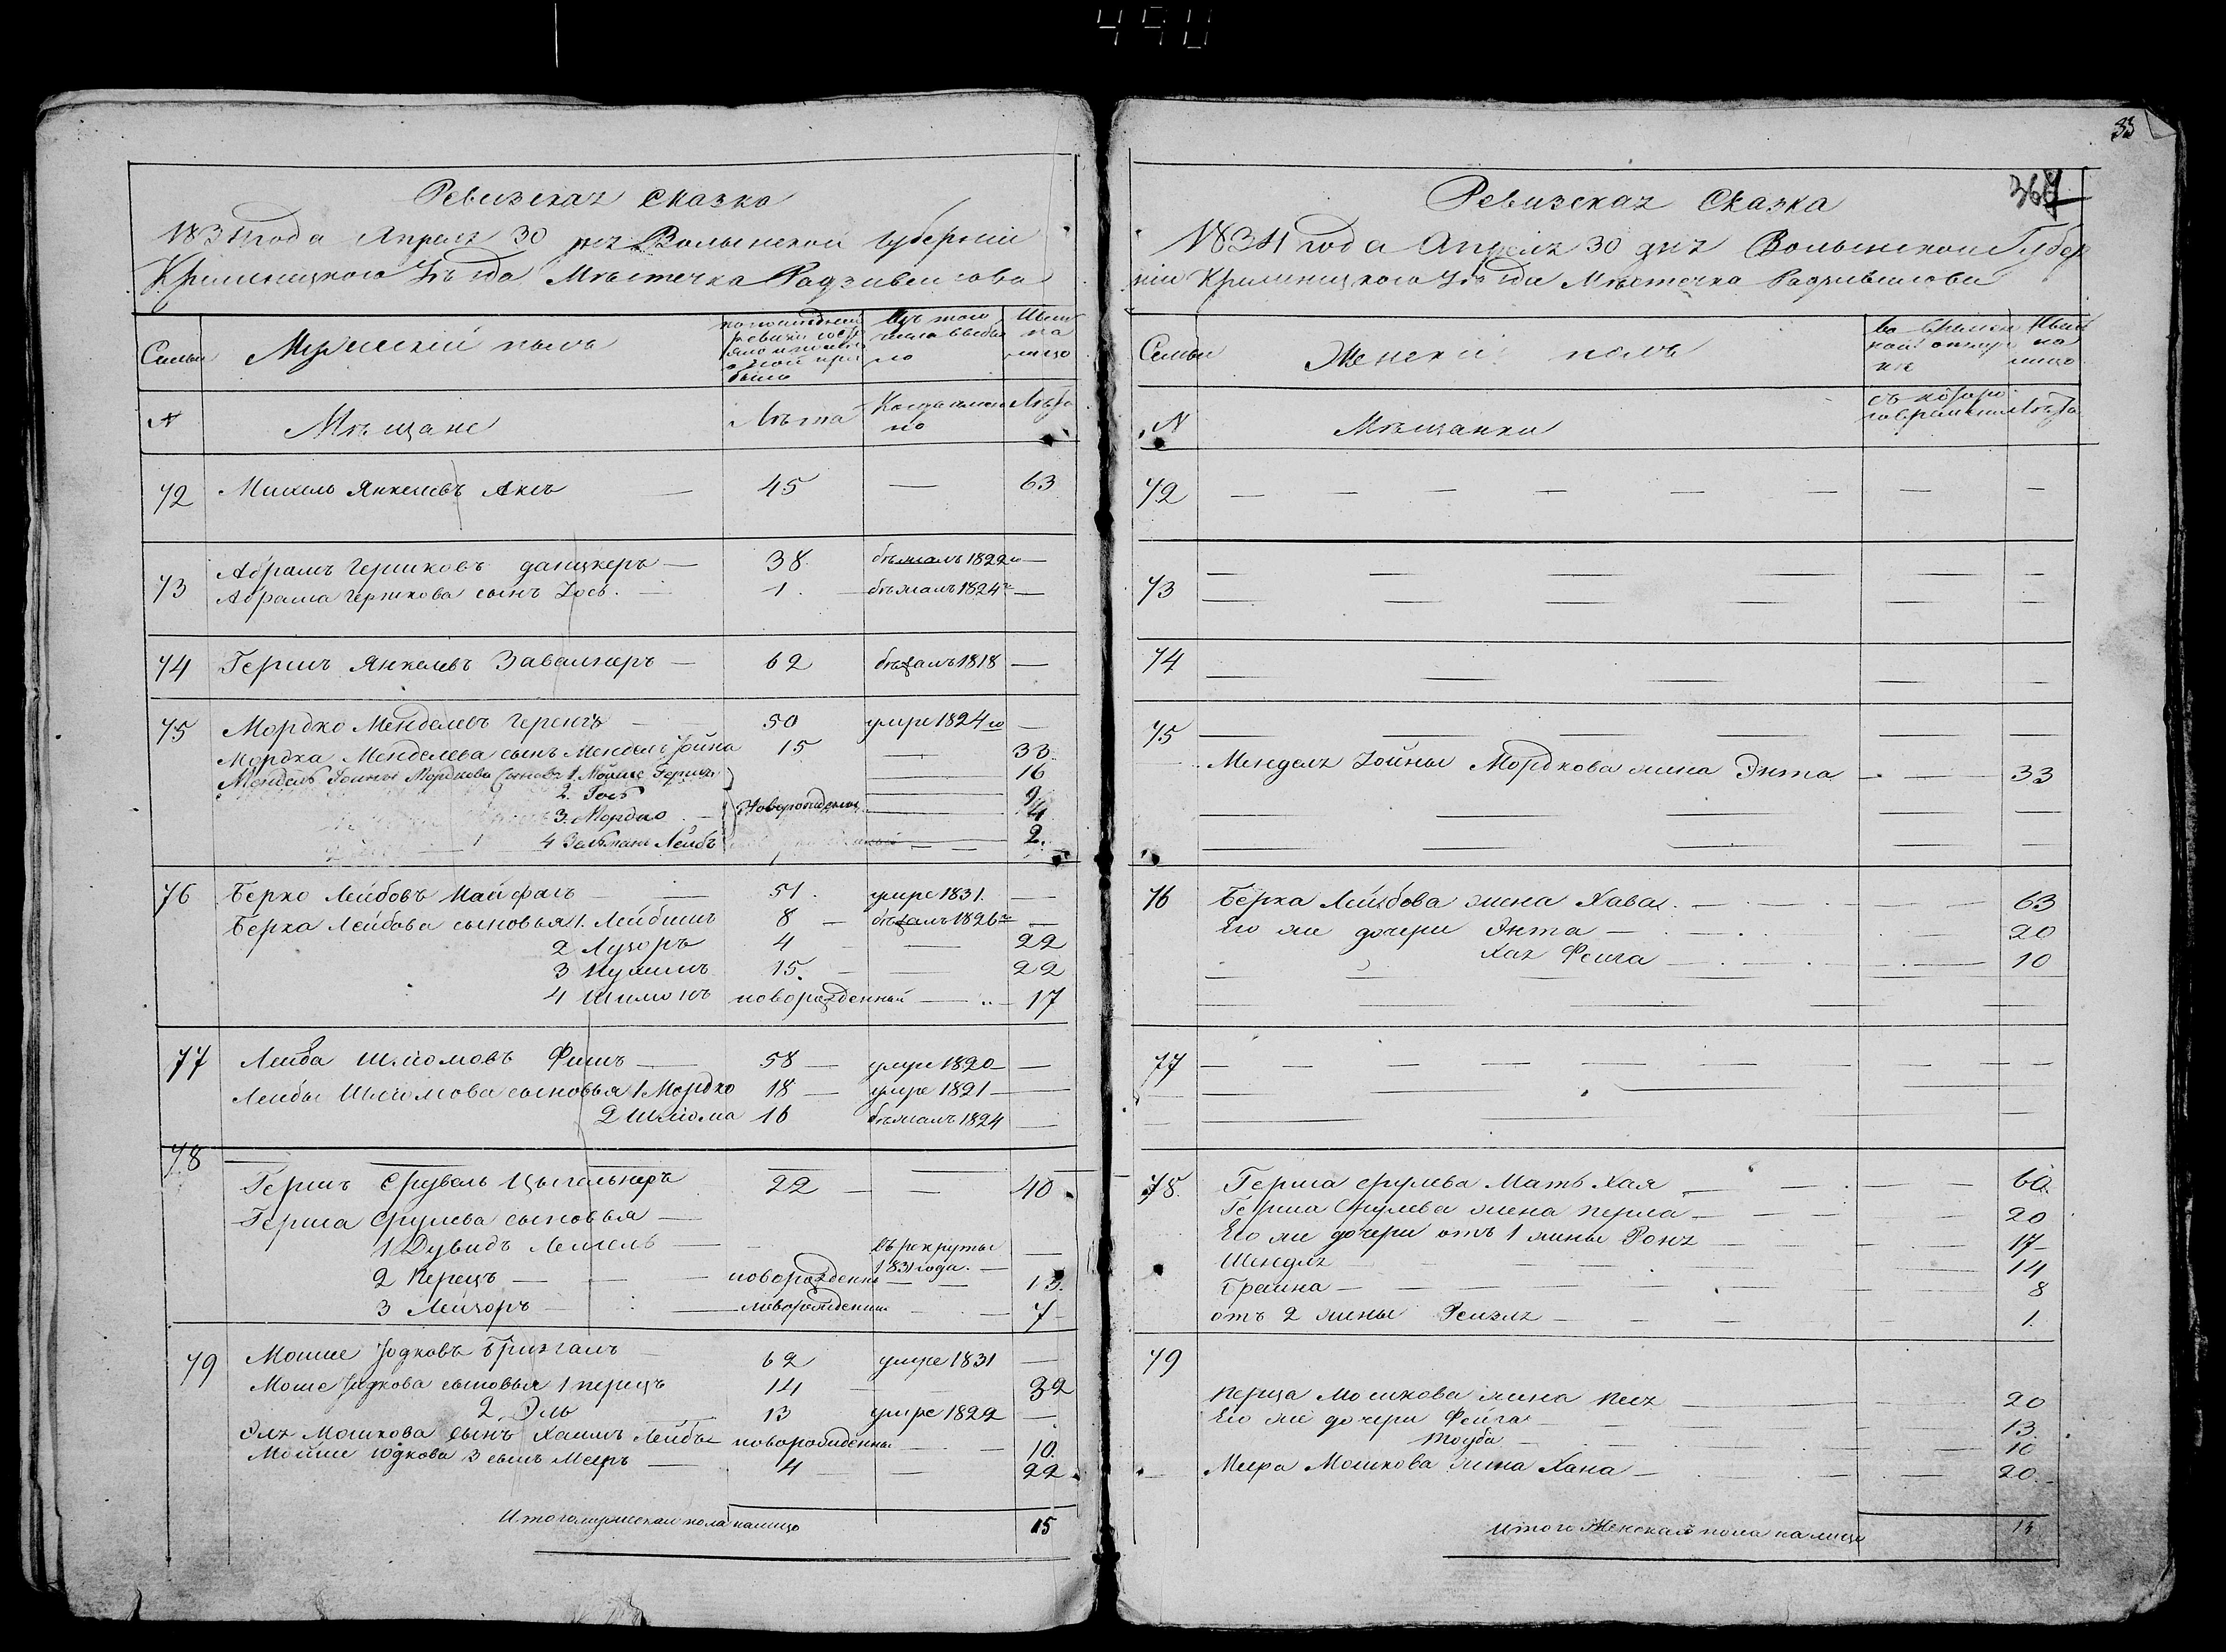 490
33
367
Ревизская Сказка
1834 года Апреля 30 дня Волынской Губернии
Кримницкого Уъзда Мѣстечка Радзивилова
Семьи
Мужескій полъ
по последней ревизіи состояло и после оной прибыло
Изъ того числа выбыло
Ныне на лицо
N
Мѣщане
Лѣта
Когда именно
Лѣта
72 Михель Янкелевъ — 45 — 63
73 Абрамъ Гершковъ данцкеръ — 38 бѣжалъ 1822го —
Абрама Гершкова сынъ Іось. — 1. бѣжалъ 1824го —
74 Гершъ Янкелевъ — 62 бѣжалъ 1818 —
75 Мордко Менделевъ — 50 умре 1824го —
Мордка Менделева сынъ Мендель Іойна 15 — 33.
Мендель Іойны Мордкова сыновья 1. Мойше Гершъ — 16
2. Іось — 9
3. Мордко — новорожденны — 4
4 Зальманъ Лейбъ — 2.
76 Берко Лейбовъ Майфасъ — 51. умре 1831. —
Берка Лейбова сыновья 1. Лейбишъ 8 — бѣжалъ 1826го —
2 Лузоръ 4 — 22
3 15. — 22
4 Шимонъ новорожденный — 17
77 Лейба Шліомовъ Фишъ — 58 — умре 1820 —
Лейбы Шліомова сыновья 1 Мордко 18 — умре 1821 —
2 Шліома 16 бѣжалъ 1824 —
78 Гершъ Сруваль Цыгельнеръ 22 — 40
Герша Срулева сыновья —
1 Дувидъ — въ рекруты 1831 года. —
2 Перецъ — новорожденны — 13.
3 Лейзоръ — новорожденны — 7
79 Мошше Іодковъ — 62 умре 1831 —
Моше Іодкова сыновья 1 перецъ 14 — 32
2. Эль 13 умре 1822 —
Эля Мошкова сынъ Хаимъ Лейбъ новорожденны — 10.
Мойше Юдкова 3 сынъ Мееръ — 4 — 22
Итого мужескаго пола налицо 15
Ревизская Сказка
1834 года Апреля 30 дня Волынской Губер
ніи Кримницкого Уъзда Мѣстечка Радзивилова
Семьи
Женскій полъ
во временной отлучке
Ныне на лицо
N
Мѣщанки
съ котораго времени
Лѣта
72 —
73 —
74 —
75 —
Менделя Іойны Мордкова жена Энта — 33
76 Берка Лейбова жена Хава. — 63
Его же дочери Энта — 20
Хая Фейга — 10
77 —
78. Герша Срулева Мать Хая — 60.
Герша Срулева жена перла — 20
Его же дочери отъ 1 жены — 17
Шейндля — 14
Брайна — 8
отъ 2 жены — 1.
79
перца Мошкова жена — 20
Его же дочери Фейга — 13.
Тоуба — 10
Меера Мошкова жена Хана — 20.
Итого Женскаго пола на лицо 13